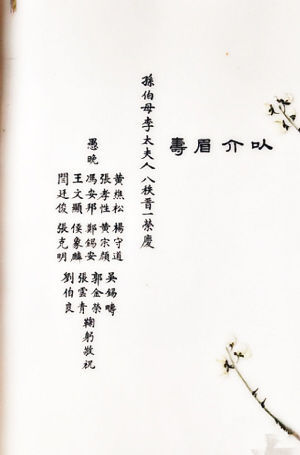 以介眉壽
孫伯母李太夫人八秩晋一榮慶
愚晚
黃樵松 張孝性 馮安邦 王文顯 閆廷俊
楊守道 黃宗頎 鄭錫安 侯象麟 張克明
吳錫疇 郭金榮 張雲青 劉伯良
鞠躬敬祝